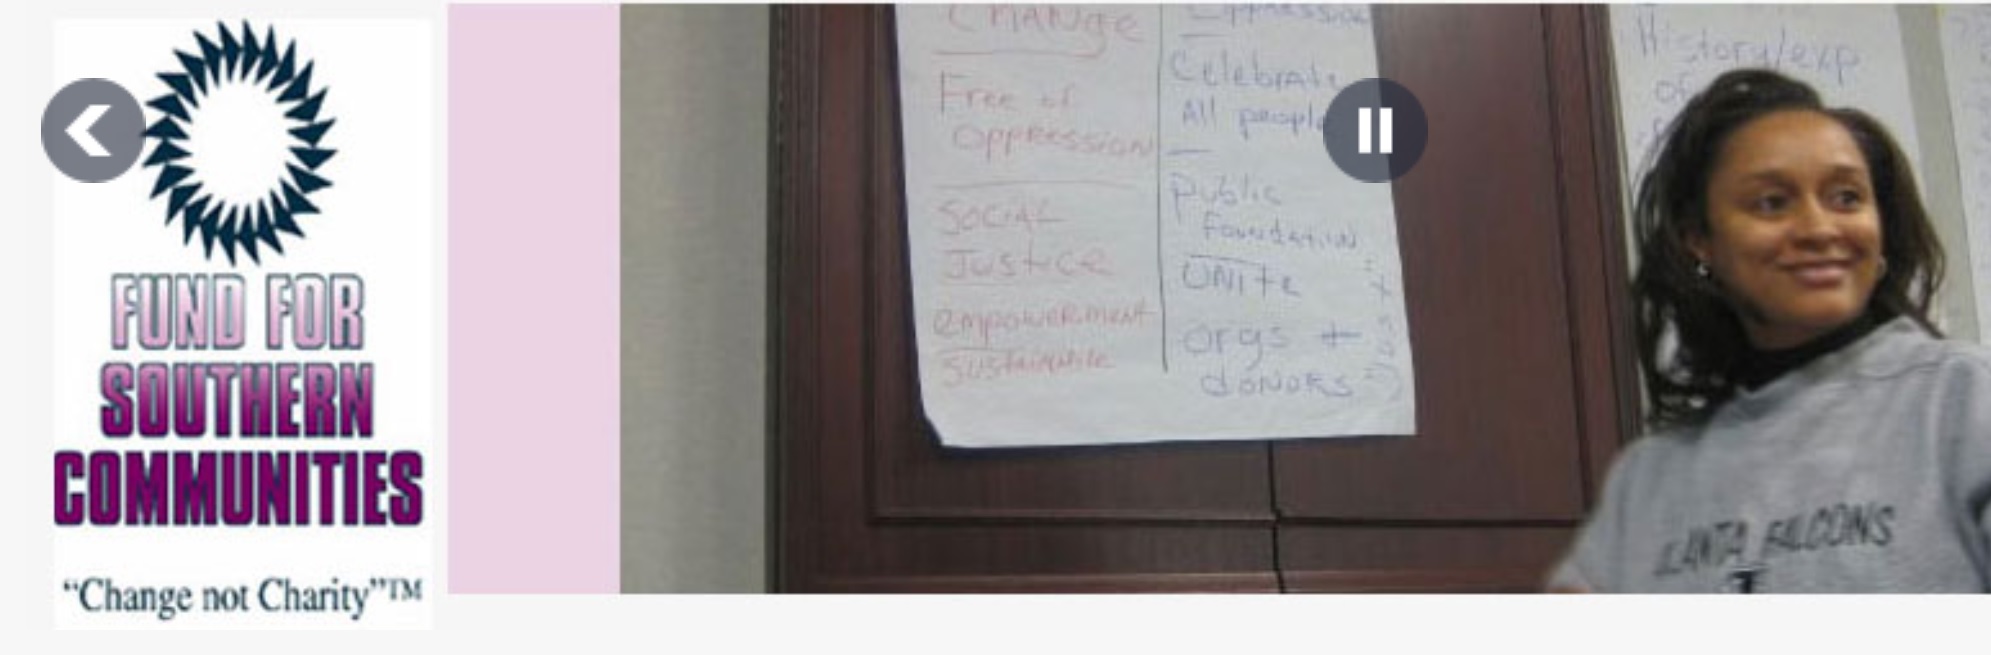 FUND FOR
SOUTHERN
COMMUNITIES
“Change not Charity”™
CHANGE
Free of
OPPRESSION
SOCIAL
JUSTICE
empowerment
sustainable
Oppression
Celebrate
All people
Public
Foundation
UNITE
orgs +
donors
History/exp
of
LANTA FALCONS